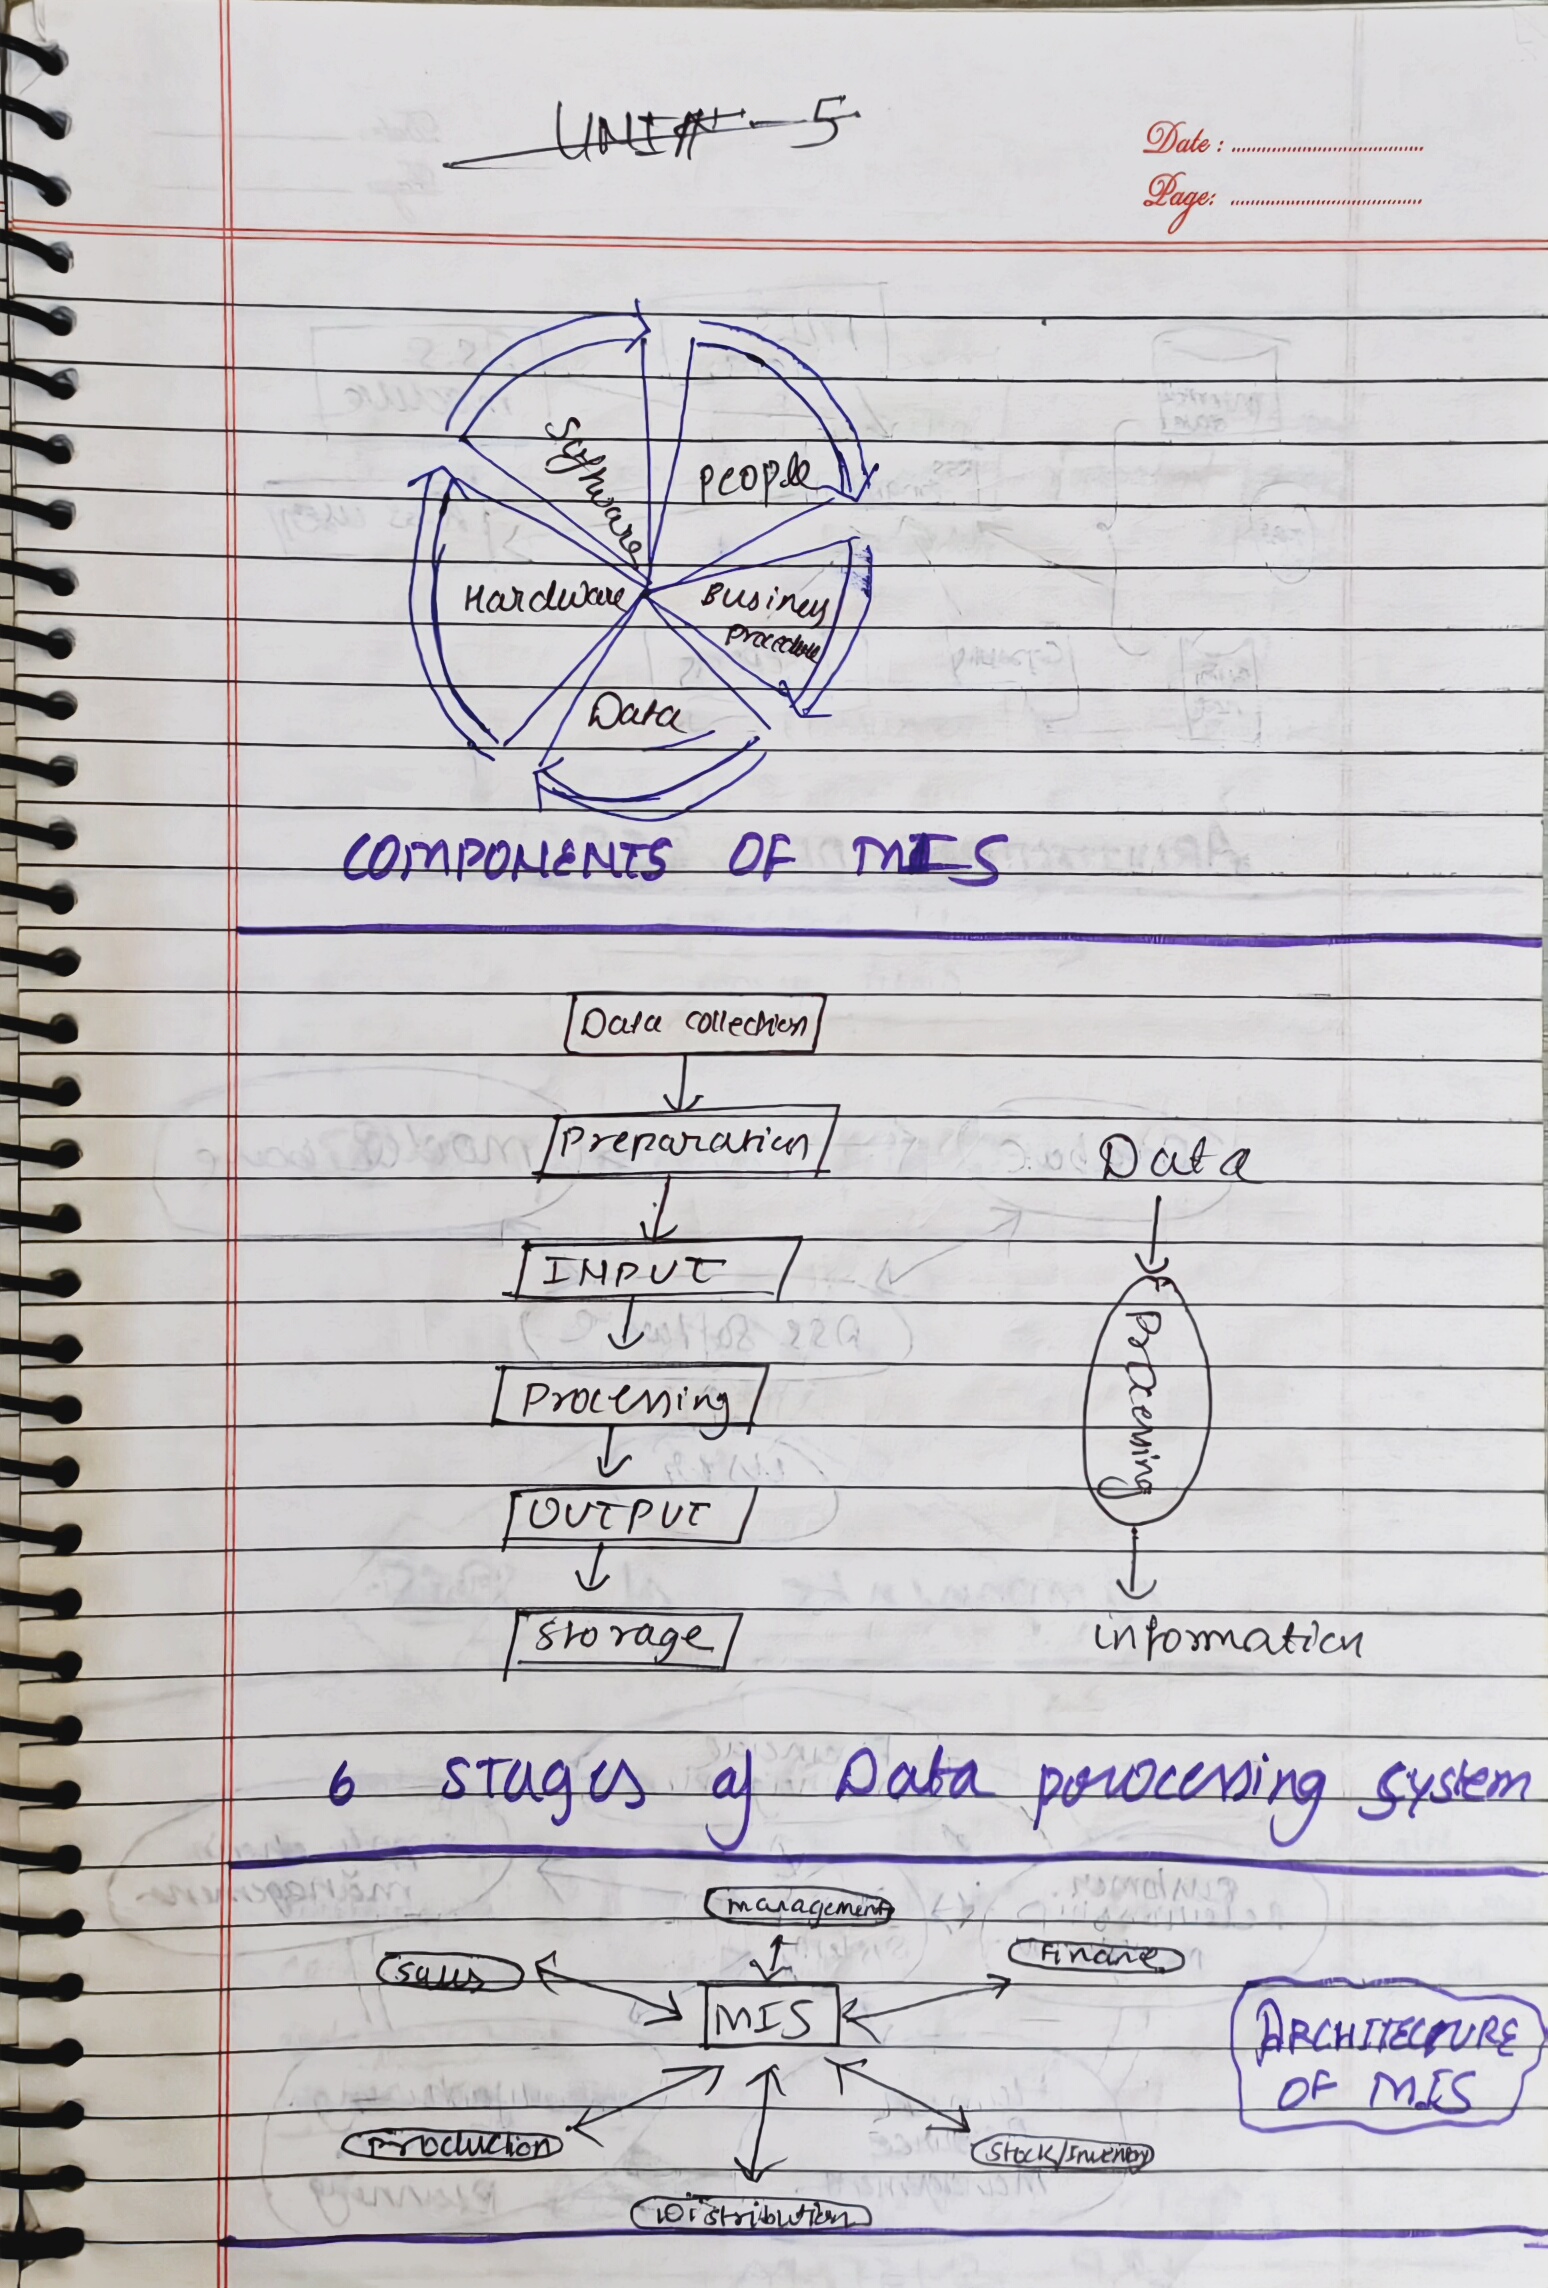 UNIT - 5
Date :
Page:
Software
People
Hardware
Business
procedure
Data
COMPONENTS OF MIS
Data collection
Preparation
Data
INPUT
Processing
Processing
OUTPUT
Storage
information
6 Stages of Data porocessing system
management
Sales
Finance
MIS
ARCHITECTURE
OF MIS
Production
Stock/Inventory
Distribution